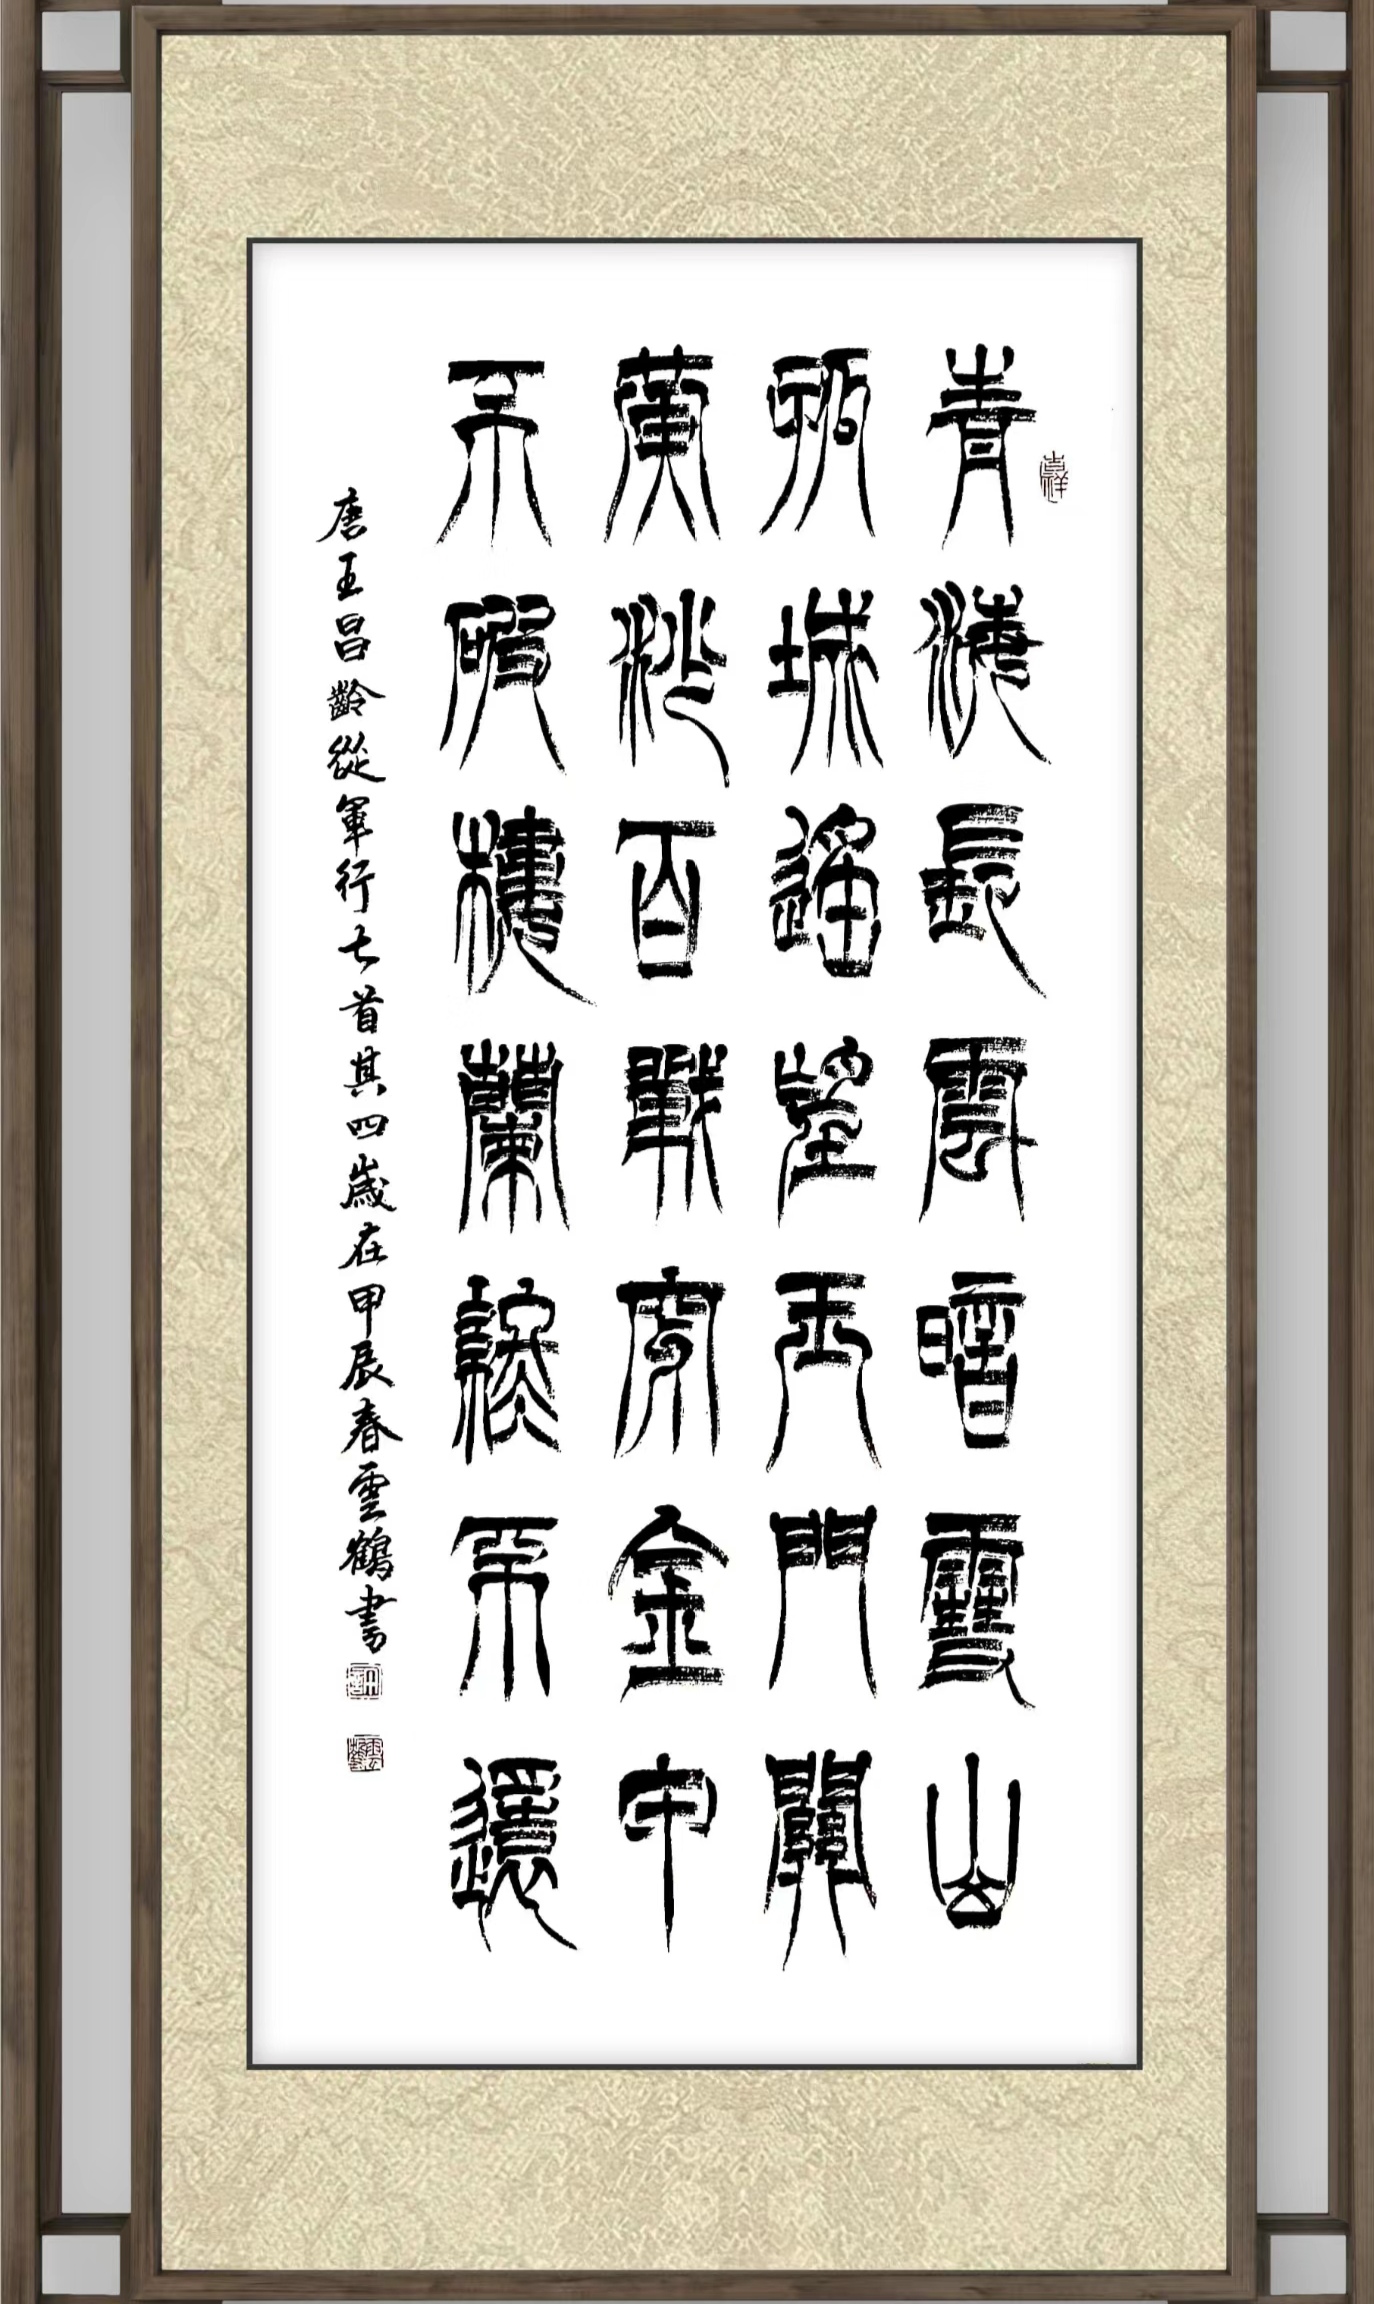 吉祥
青海長雲暗雪山
孤城遙望玉門關
黃沙百戰穿金甲
不破樓蘭終不還
唐王昌齡從軍行七首其四歲在甲辰春雲鶴書
雲鶴